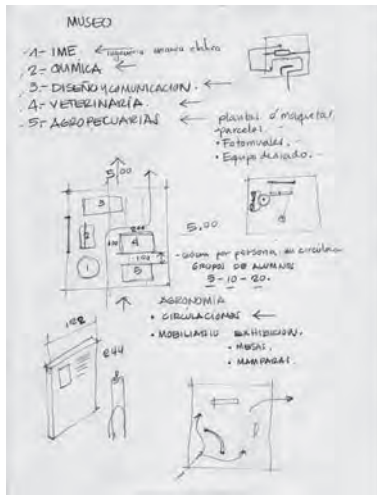 MUSEO
1- IME ← ingeniería mecánica eléctrica
2- QUIMICA ←
3- DISEÑO Y COMUNICACION. ←
4- VETERINARIA ←
5- AGROPECUARIAS ← plantas ó maquetas
- parcelas. -
• Fotomurales. -
• Equipo
5.00
3
2
200
4
1
5
5.00
por persona, en circulación
GRUPOS DE ALUMNOS
5-10-20.
AGRONOMIA
• CIRCULACIONES ←
• MOBILIARIO EXHIBICION.
• MESAS.
• MAMPARAS.
122
244